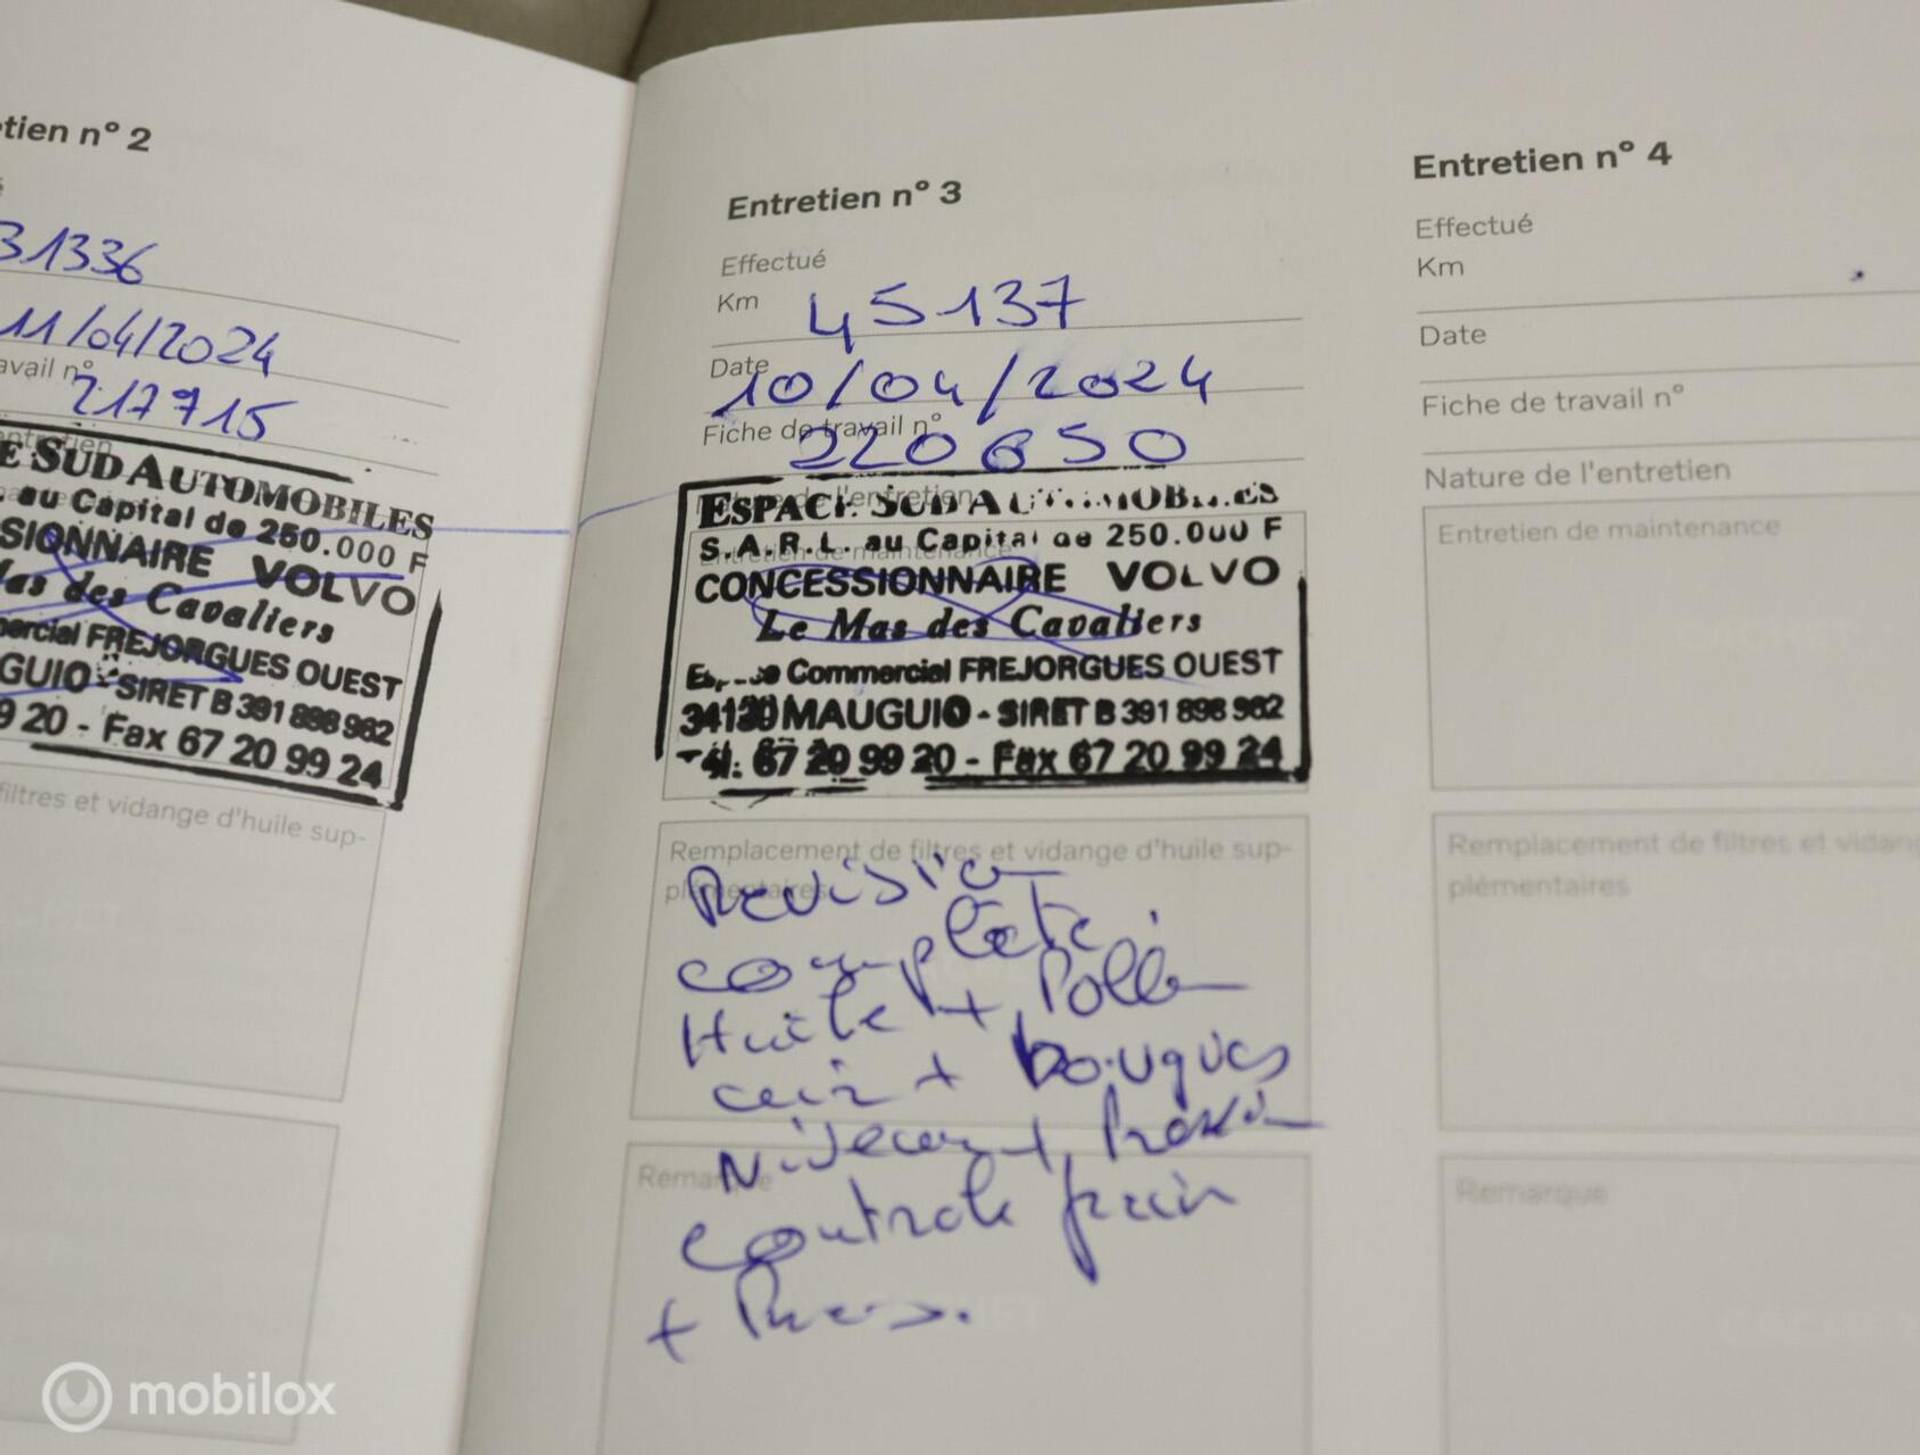 tien n° 2
31336
11/04/2024
avail n°
217715
E SUD AUTOMOBILES
. au Capital de 250.000 F
SIONNAIRE VOLVO
Mas des Cavaliers
mercial FREJORGUES OUEST
GUIO - SIRET B 391 898 982
9 20 - Fax 67 20 99 24
filtres et vidange d'huile sup-
Entretien n° 3
Effectué
Km 45137
Date 10/04/2024
Fiche de travail n° 220650
Nature de l'entretien
Entretien de maintenance
ESPACE SUD AUTOMOBILES
S.A.R.L. au Capital de 250.000 F
CONCESSIONNAIRE VOLVO
Le Mas des Cavaliers
Espace Commercial FREJORGUES OUEST
34130 MAUGUIO - SIRET B 391 898 982
Tél. 67 20 99 20 - Fax 67 20 99 24
Remplacement de filtres et vidange d'huile sup-
plémentaires
Revision
complète
Huile + Pollen
+ bougies
Remarque
controle frein
+ Pneus.
Entretien n° 4
Effectué
Km
Date
Fiche de travail n°
Nature de l'entretien
Entretien de maintenance
Remplacement de filtres et vidang
plémentaires
Remarque
mobilox